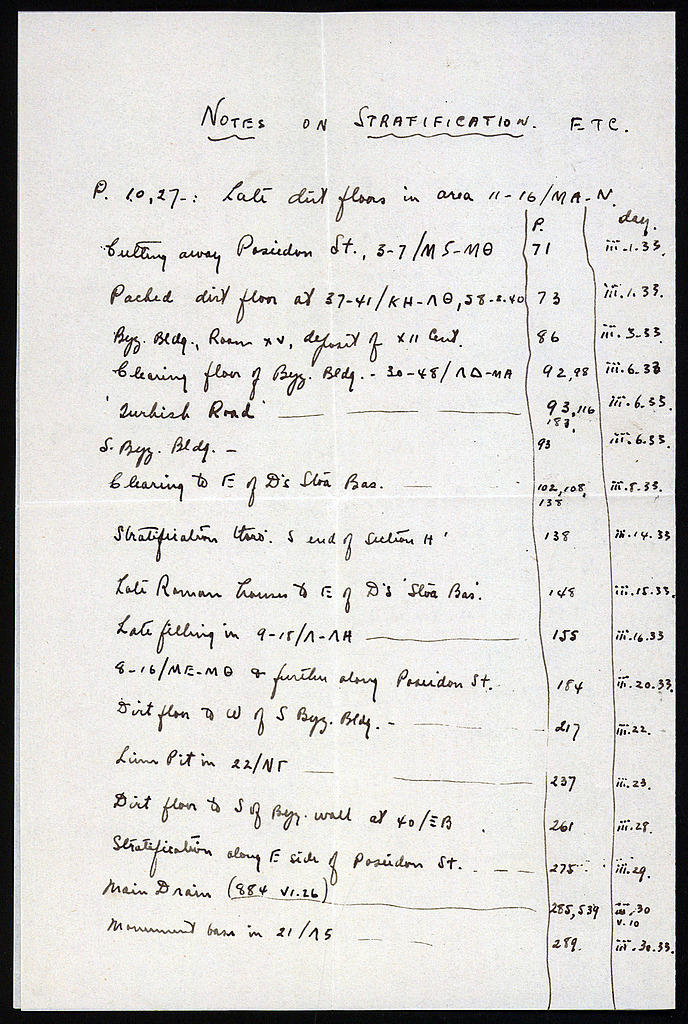 NOTES ON STRATIFICATION. ETC.
P. 10,27-: Late dirt floors in area 11-16/MA-N.
P. day.
Cutting away Poseidon St., 3-7/MS-MΘ 71 iii.1.33.
Packed dirt floor at 37-41/KH-ΛΘ, 58-2.40 73 iii.1.33.
Byz. Bldg., Room XV, deposit of XII Cent. 86 iii.3.33
Clearing floor of Byz. Bldg. - 30-48/ΛΔ-MA 92,98 iii.6.33
'Turkish Road' 93,116 iii.6.33.
183,
S. Byz. Bldg. - 93 iii.6.33.
Clearing to E of D's Stoa Bas. 102,108, iii.8.33.
138
Stratification thro. S end of Section H' 138 iii.14.33
Late Roman houses to E of D's 'Stoa Bas'. 148 iii.15.33.
Late filling in 9-15/Λ-ΛH 155 iii.16.33
8-16/ME-MΘ & further along Poseidon St. 184 iii.20.33.
Dirt floor to W of S Byz. Bldg. - 217 iii.22.
Lime Pit in 22/NΓ 237 iii.23.
Dirt floor to S of Byz. wall at 40/ΞB. 261 iii.28.
Stratification along E side of Poseidon St. 275 iii.29.
Main Drain (884 VI.26) 285,539 iii.30
v.10
Monument base in 21/Λ5 289. iii.30.33.